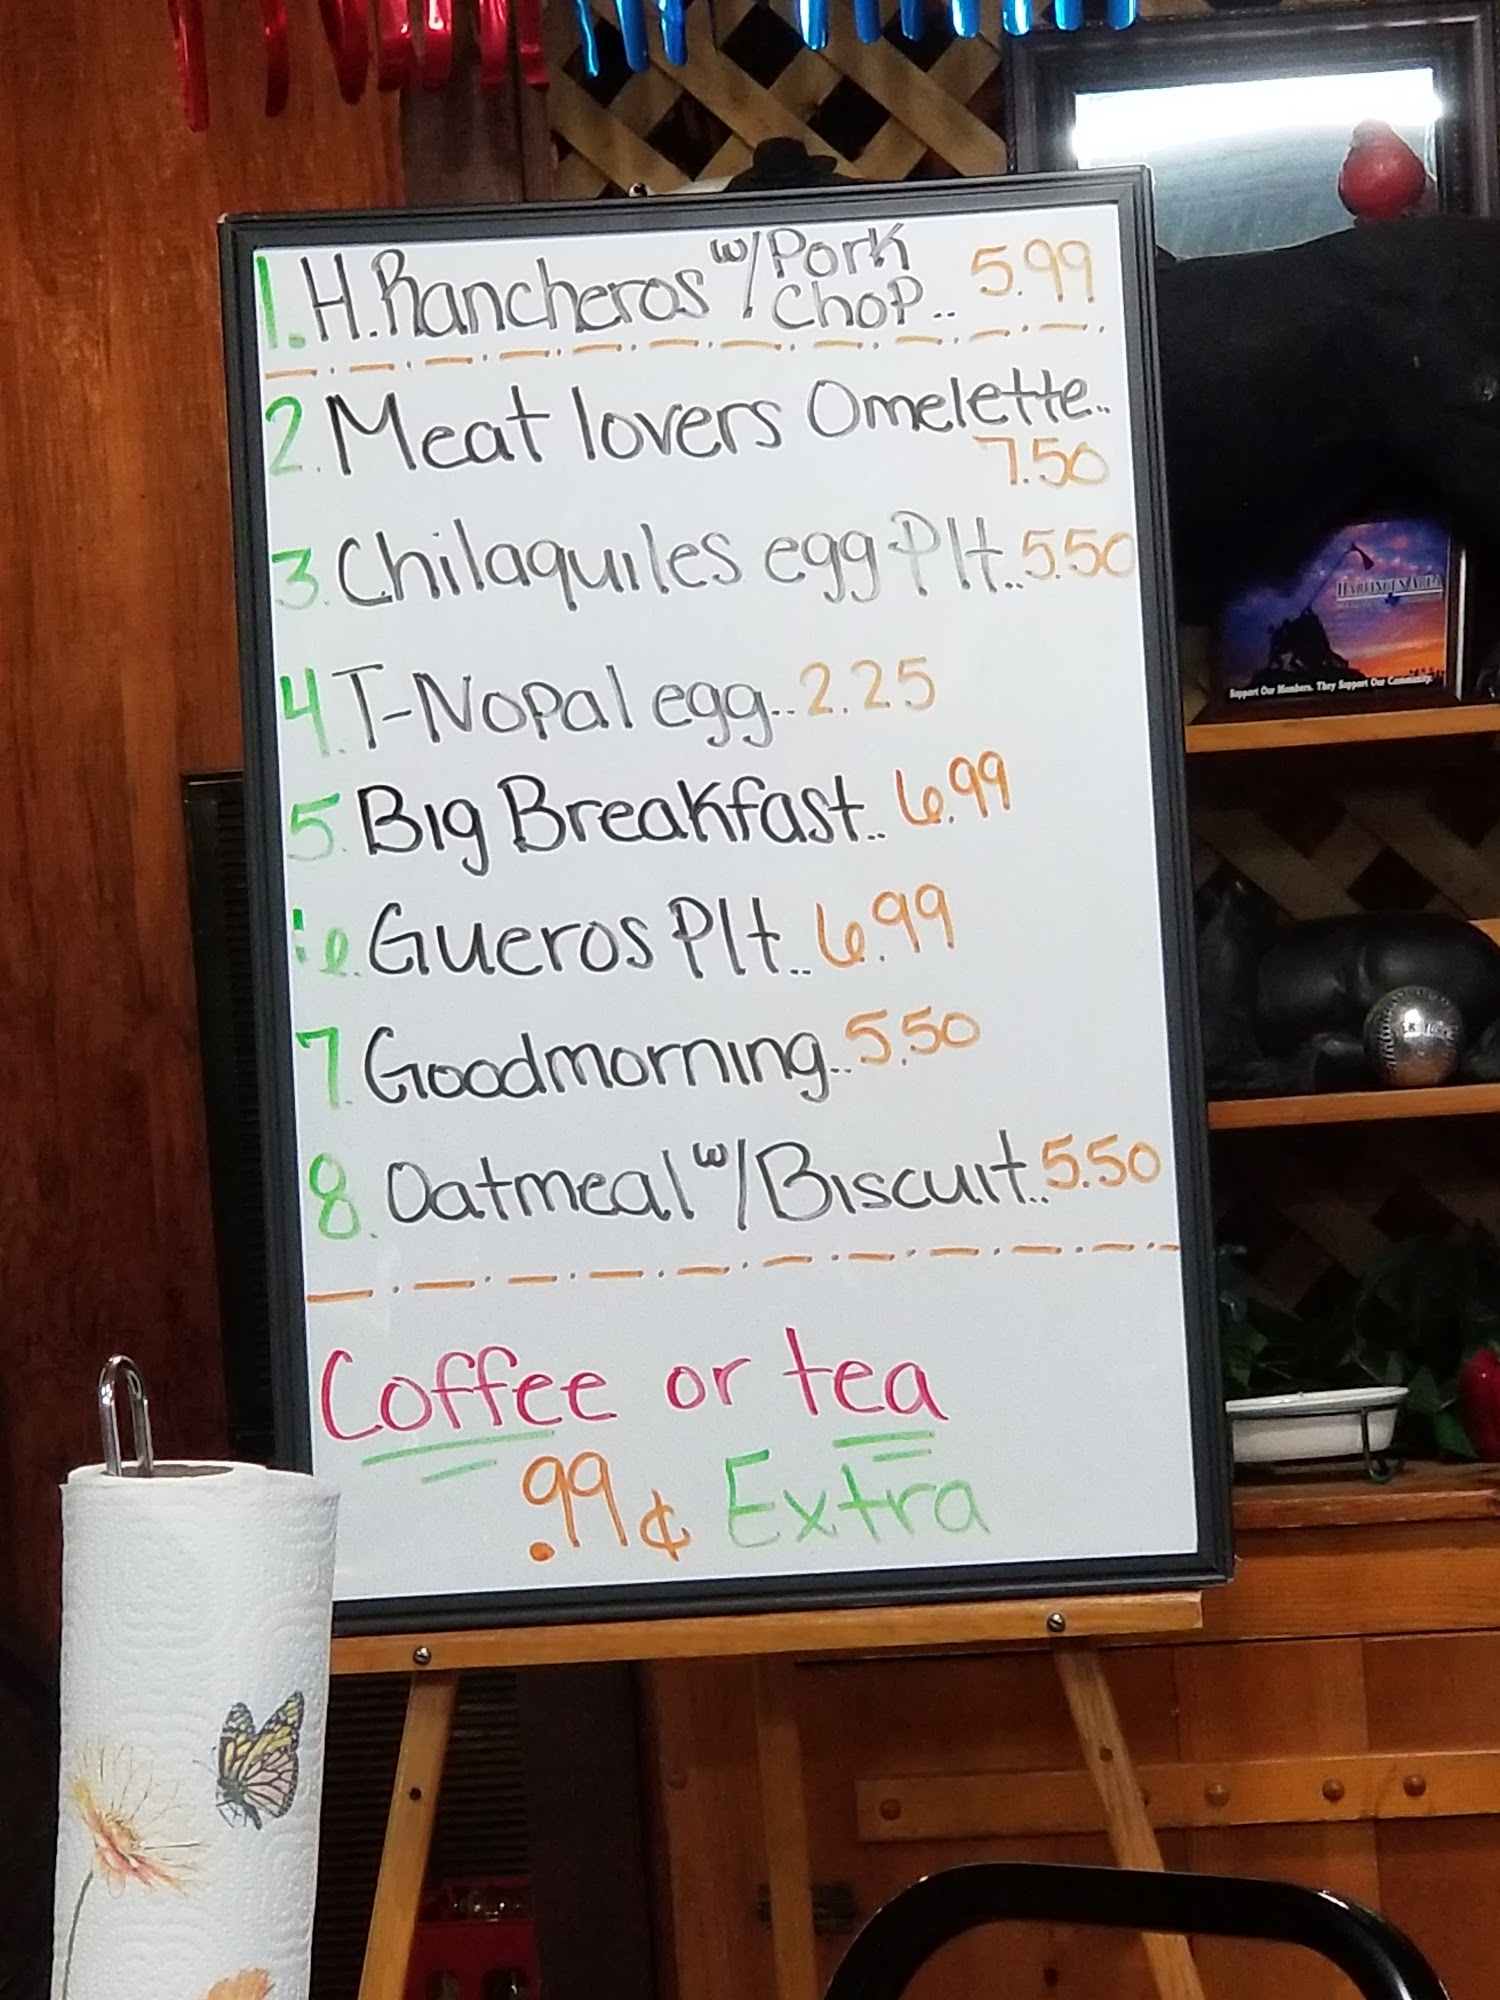 1. H. Rancheros w/ Pork Chop.. 5.99
2. Meat lovers Omelette..
7.50
3. Chilaquiles egg Plt.. 5.50
4. T-Nopal egg.. 2.25
5. Big Breakfast.. 6.99
6. Gueros Plt.. 6.99
7. Goodmorning.. 5.50
8. Oatmeal w/ Biscuit.. 5.50
Coffee or tea
.99¢ Extra
HARLINGEN AREA
Support Our Members. They Support Our Community.